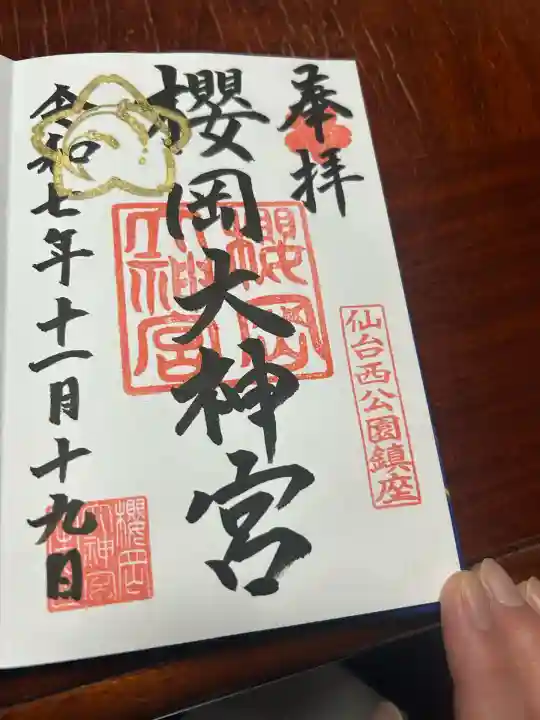 奉拝
仙台西公園鎮座
櫻岡大神宮
櫻岡大神宮
令和七年十一月十九日